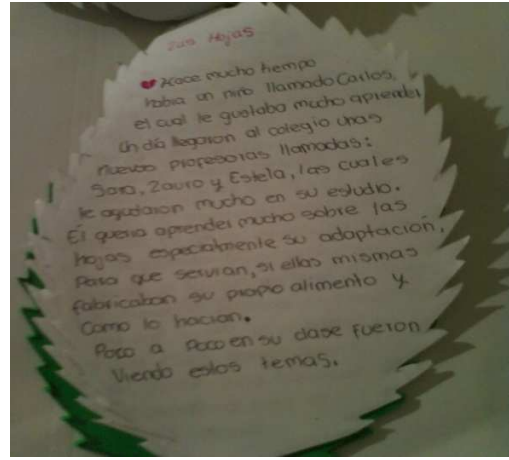 Las Hojas
Hace mucho tiempo
habia un niño llamado Carlos,
el cual le gustaba mucho aprender
Un día llegaron al colegio unas
nuevas profesoras llamadas:
Sara, Laura y Estela, las cuales
le ayudaron mucho en su estudio.
El queria aprender mucho sobre las
hojas especialmente su adaptación,
Para que servian, si ellas mismas
fabricaban su propio alimento y
Como lo hacian.
Poco a Poco en su clase fueron
Viendo estos temas.